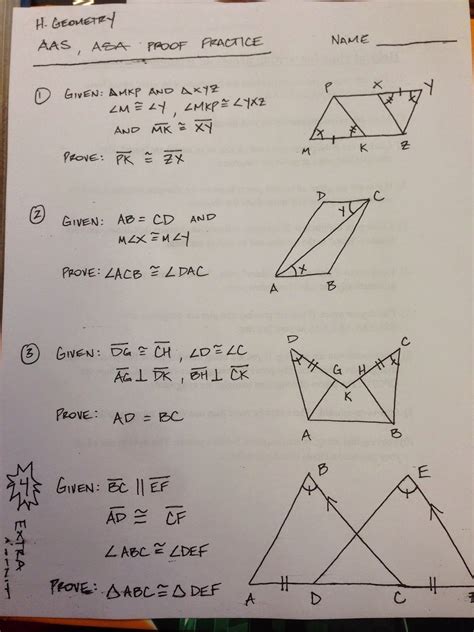 H. GEOMETRY
AAS, ASA PROOF PRACTICE
NAME
1 GIVEN: ΔMKP AND ΔXYZ
∠M ≅ ∠Y, ∠MKP ≅ ∠YXZ
AND MK ≅ XY
PROVE: PK ≅ ZX
P X Y
M K Z
2 GIVEN: AB = CD AND
m∠X ≅ m∠Y
PROVE: ∠ACB ≅ ∠DAC
D C
Y
X
A B
3 GIVEN: DG ≅ CH, ∠D ≅ ∠C
AG ⊥ DK, BH ⊥ CK
PROVE: AD = BC
D C
G H
K
A B
4 EXTRA
GIVEN: BC || EF
AD ≅ CF
∠ABC ≅ ∠DEF
PROVE: ΔABC ≅ ΔDEF
B E
A D C